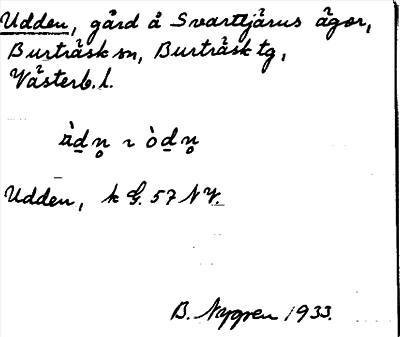 Udden, gård å Svarttjärns ägor,
Burträsk sn, Burträsk tg,
Västerb.l.
Udden, k G. 57 NV.
B. Nygren 1933.